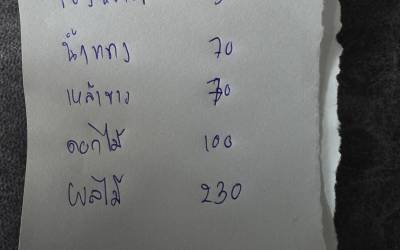 น้ำทาง 70
เหล้าขาว 70
ดอกไม้ 100
ผลไม้ 230